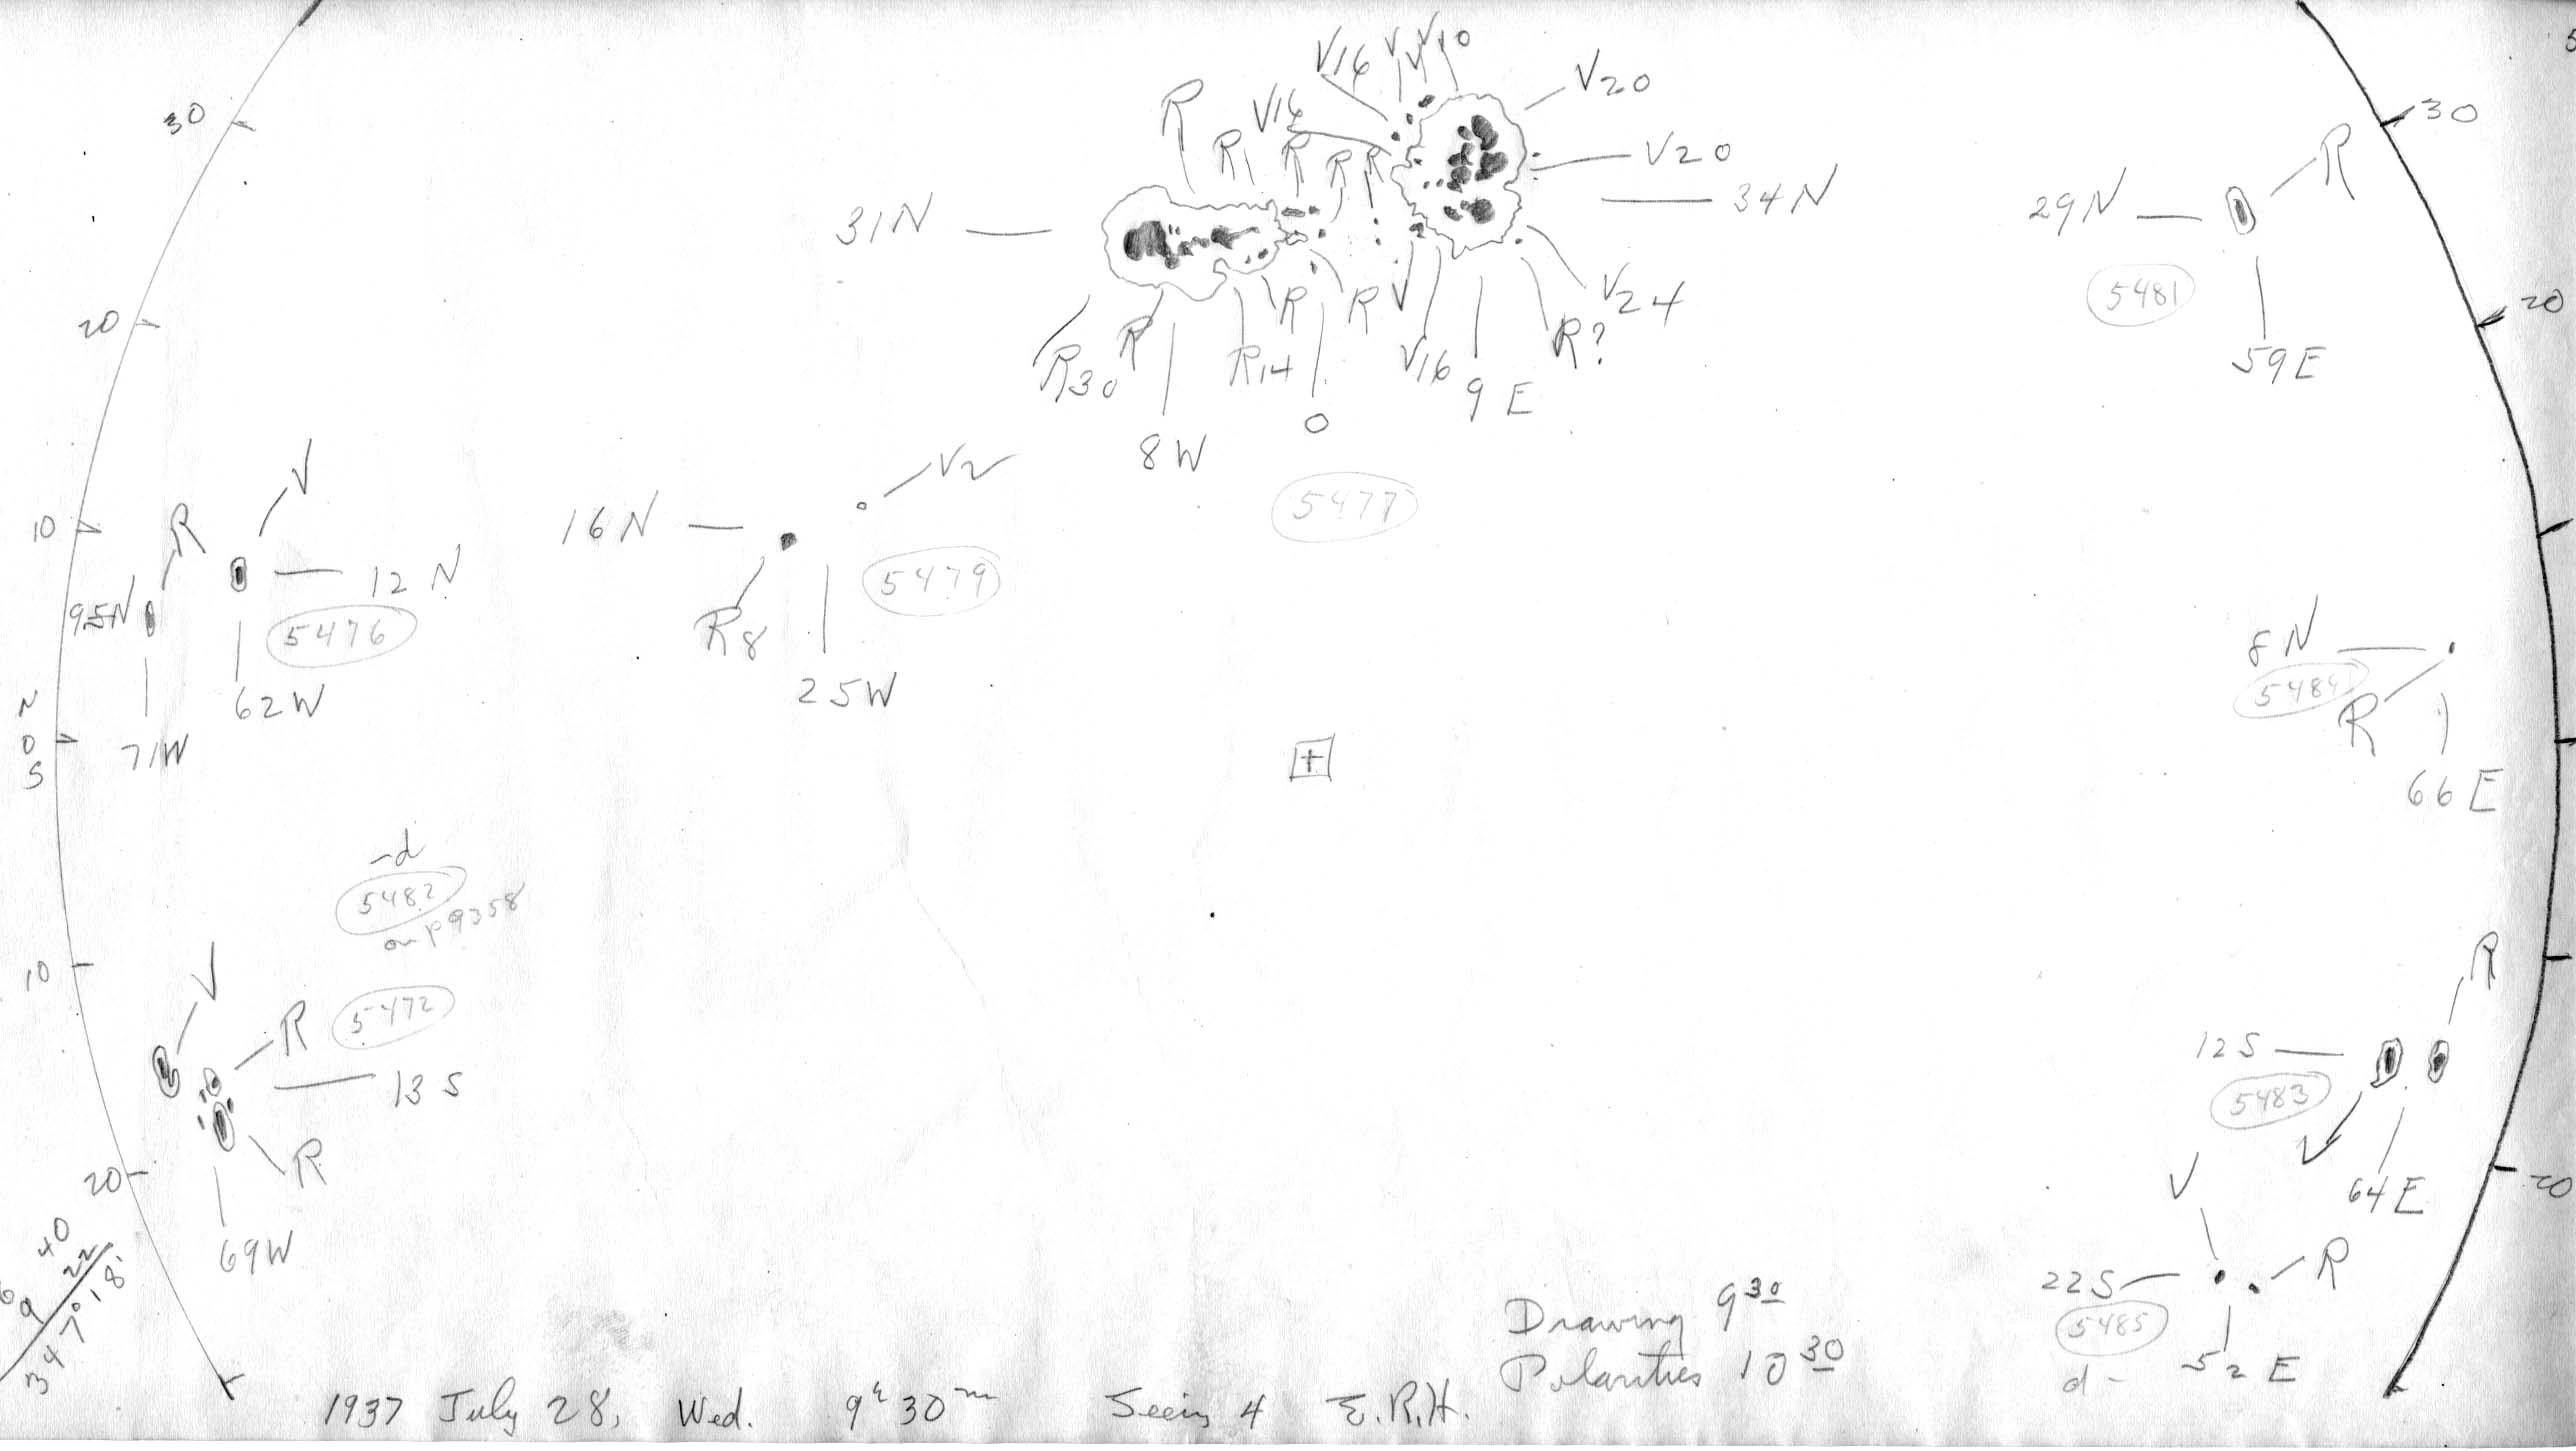 V16 V V V10
V20
R V16
R R R R
V20
31N
34N
30
30
R
29N
5481
59E
20
20
R30 R R14 R R V V16 V24 R?
8W 0 9 E
5477
V
10
R
12 N
95N
5476
62W
71W
N
0
S
16 N
V2
R8
5479
25W
8 N
5484
R
66 E
+
-d
5482
on p9358
10
V
R
5472
13 S
R
20
69W
R
12S
5483
V
64 E
20
V
22S
R
5485
d -
52 E
40
69 22
347°18'
Drawing 9 30
Polarities 10 30
1937 July 28, Wed. 9h 30m Seeing 4 E.R.H.